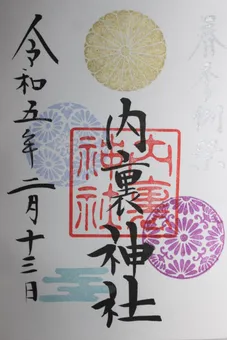 内裏神社
内裏神社
令和五年二月十三日